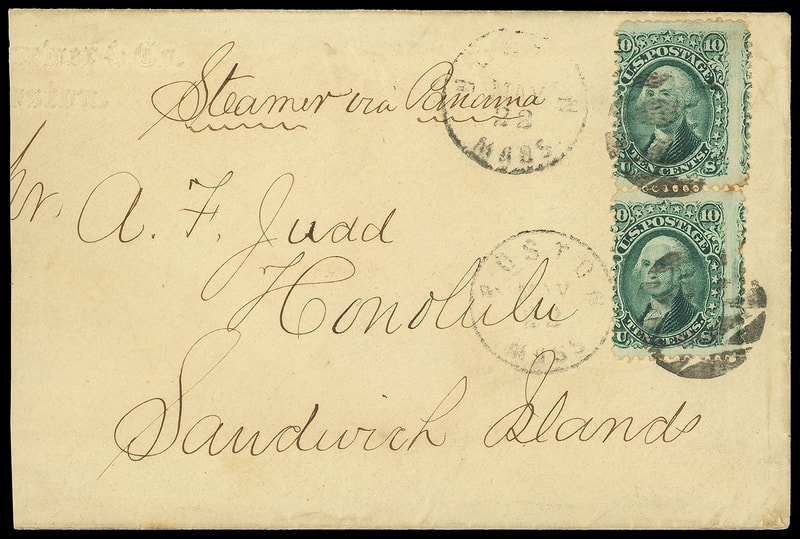 & Co.
Steamer via Panama
Mr. A. F. Judd
Honolulu
Sandwich Islands
22
MASS
BOSTON
NOV
22
MASS
10 10
U.S. POSTAGE
TEN CENTS.
U S
10 10
U.S. POSTAGE
TEN CENTS.
U S